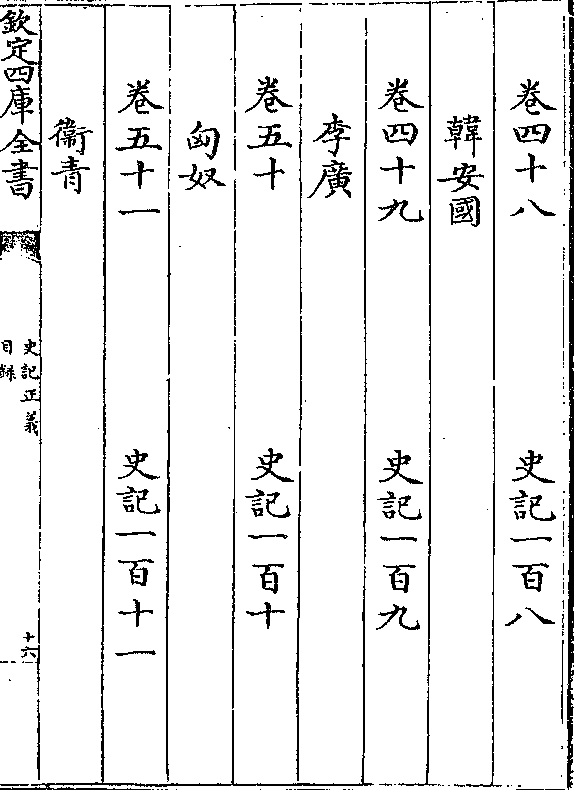 卷四十八 史記一百八
韓安國
卷四十九 史記一百九
李廣
卷五十 史記一百十
匈奴
卷五十一 史記一百十一
衞青
欽定四庫全書
史記正義
目録
十六